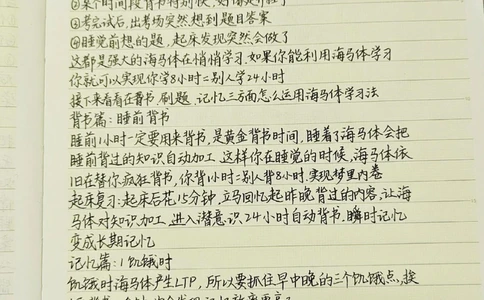 ②某个时间段背书特别快,
③考完试后,出考场突然想到题目答案
④睡觉前想的题,起床发现突然会做了
这都是强大的海马体在悄悄学习,如果你能利用海马体学习
你就可以实现你学8小时=别人学24小时
接下来看看在背书.刷题,记忆三方面怎么运用海马体学习法
背书篇:睡前背书
睡前1小时一定要用来背书,是黄金背书时间,睡着了海马体会把
睡前背过的知识自动加工,这样你在睡觉的时候,海马体依
旧在替你疯狂背书,你背1小时=别人背8小时,实现梦里内卷
起床复习:起床后花15分钟,立马回忆起昨晚背过的内容,让海
马体对知识加工,进入潜意识,24小时自动背书.瞬时记忆
变成长期记忆
记忆篇:1饥饿时
饥饿时海马体产生LTP,所以要抓住早中晚的三个饥饿点,挨